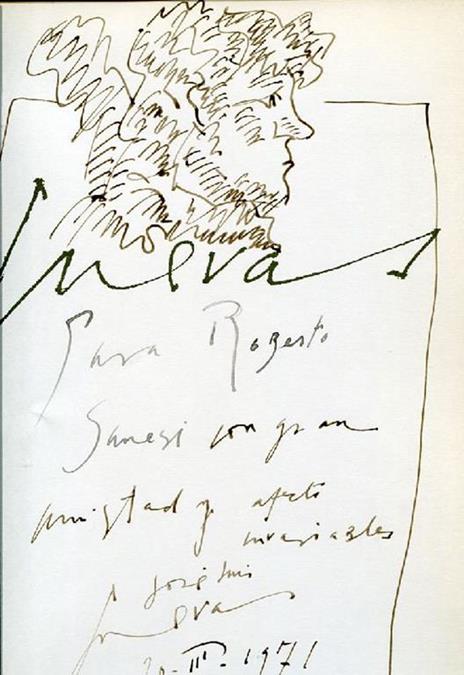 Cuevas
Para Roberto
Sanesi con gran
amistad y afecto
invariables
José Luis
Cuevas
20-III-1971